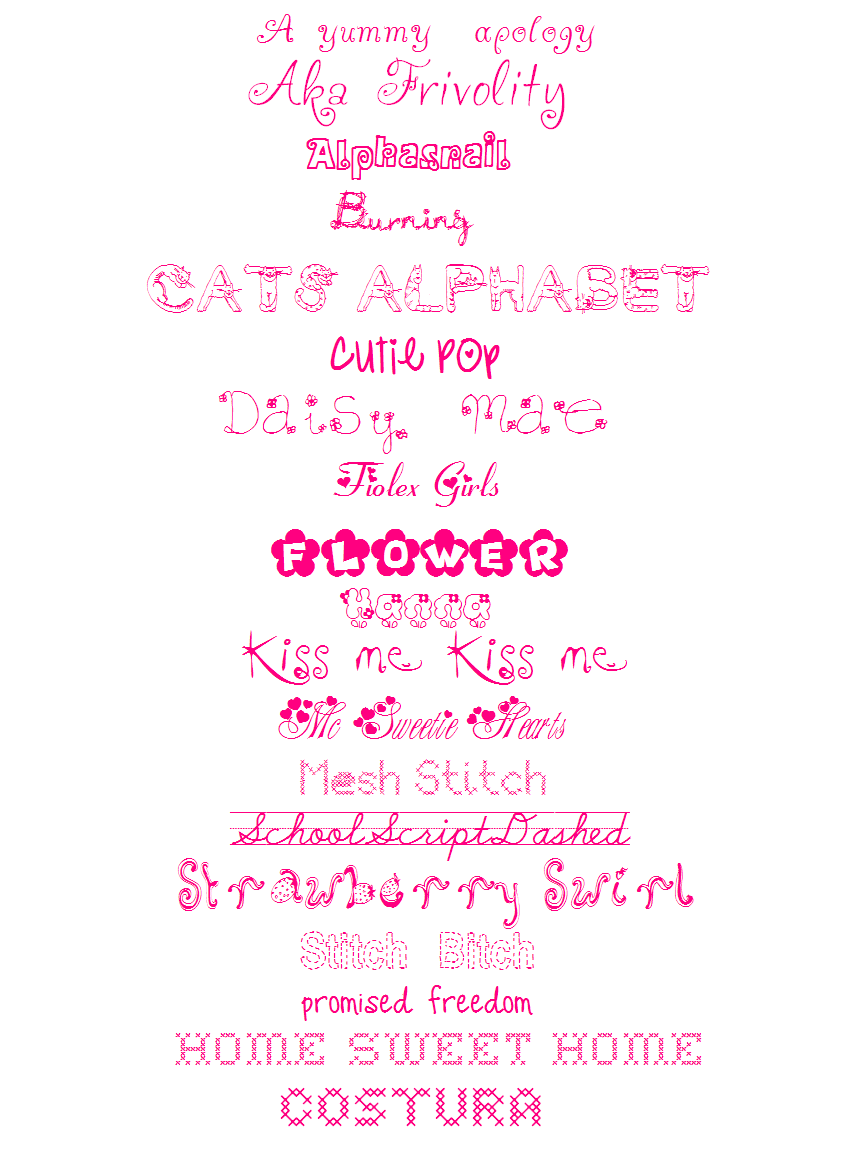 A yummy apology
Aka Frivolity
Alphasnail
Burning
CATS ALPHABET
Cutie Pop
Daisy Mae
Fiolex Girls
FLOWER
Hanna
Kiss me Kiss me
Mc Sweetie Hearts
Mesh Stitch
School Script Dashed
Strawberry Swirl
Stitch Bitch
promised freedom
HOME SWEET HOME
COSTURA